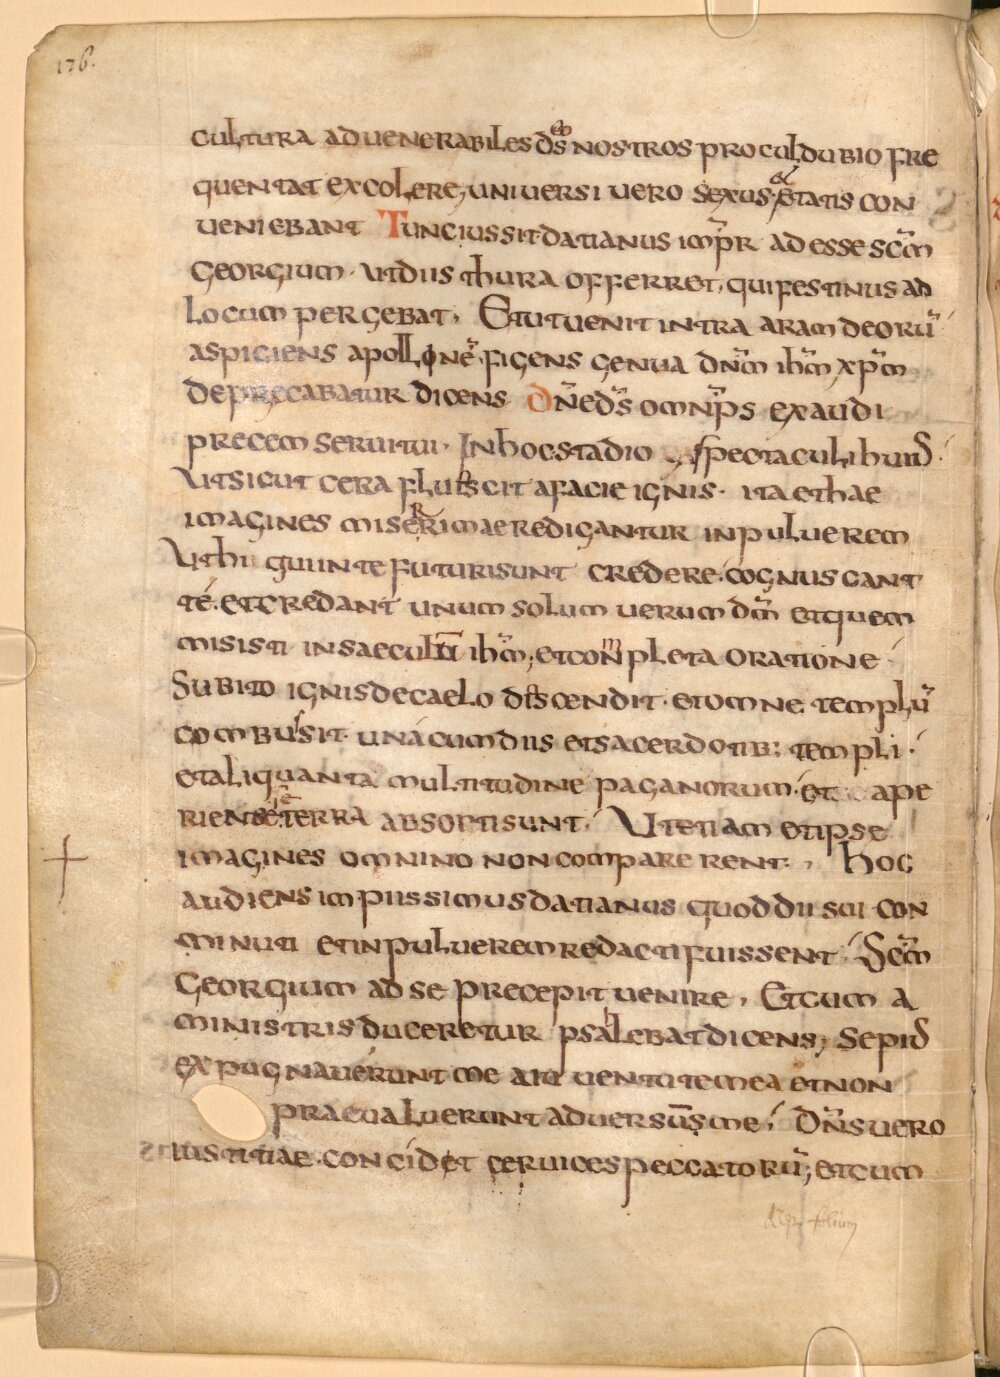 176.
cultura aduenerabiles d̅s̅ nostros proculdubio fre
quentat excolere, uniuersi uero sexus et etatis con
ueniebant Tunc iussit datianus imp̅r adesse sc̅m
Georgium. ut diis thura offerret, qui festinus ad
locum pergebat. Et ut uenit intra aram deorū
aspiciens apollonē. figens genua dn̅m ih̅m xp̅m
deprecabatur dicens Dn̅e d̅s̅ omnp̅s exaudi
precem seruitui. In hoc stadio spectaculi huiꝰ.
Ut sicut cera fluescit a facie ignis. ita et hae
imagines miserrimae redigantur in puluerem
Ut hi qui in te futuri sunt credere. cognuscant
te. et credant unum solum uerum dm̅ et quem
misisti in saeculū ih̅m; et conpleta oratione
Subito ignis de caelo descendit. et omne templū
combussit. una cum diis et sacerdotib; templi.
et aliquanta multitudine paganorum. et ape
riente terra absorti sunt, Ut etiam et ipse
imagines omnino non comparerent. hoc
audiens impiissimus datianus quod dii sui con
minuti et in puluerem redacti fuissent. Sc̅m
Georgium ad se precepit uenire. Et cum a
ministris duceretur psallebat dicens; Sepiꝰ
expugnauerunt me a iuuentute mea et non
praeualuerunt aduersus me. Dn̅s uero
iustitiae. concidet ceruices peccatorū; et cum
deest folium